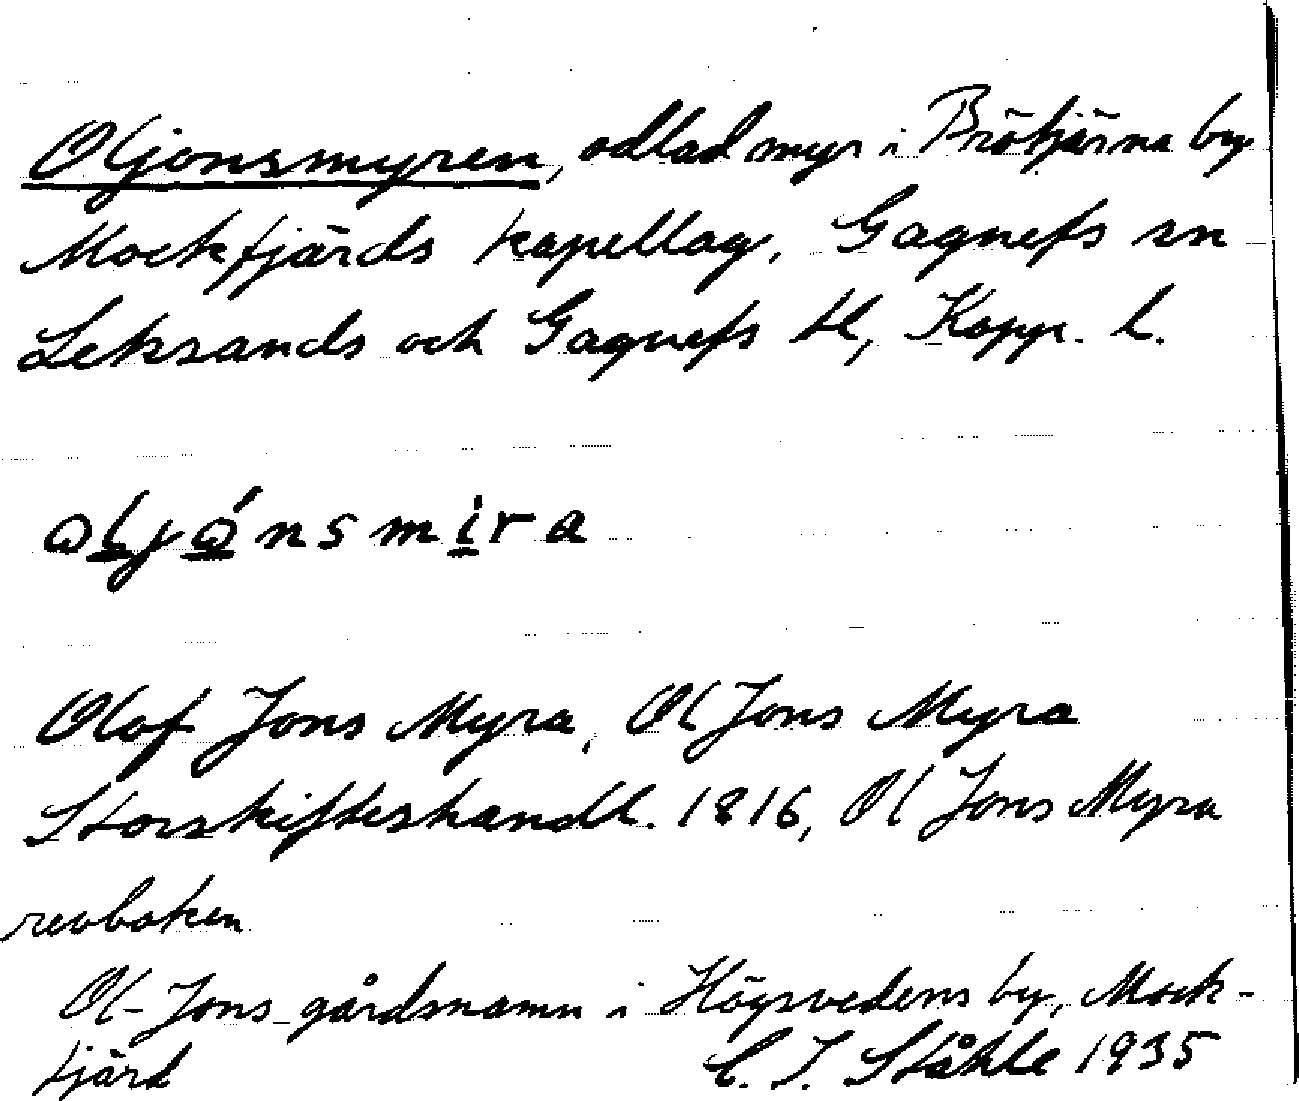 Oljonsmyren, odlad myr i Brötjärna by
Mockfjärds kapellag, Gagnefs sn
Leksands och Gagnefs tl, Kopp. l.
ơljǿnsmira
Olof Jons Myra, Ol Jons Myra
Storskifteshandl. 1816, Ol Jons Myra
revboken
Ol-Jons gårdsnamn i Högsvedens by, Mock-
fjärd C. I. Ståhle 1935